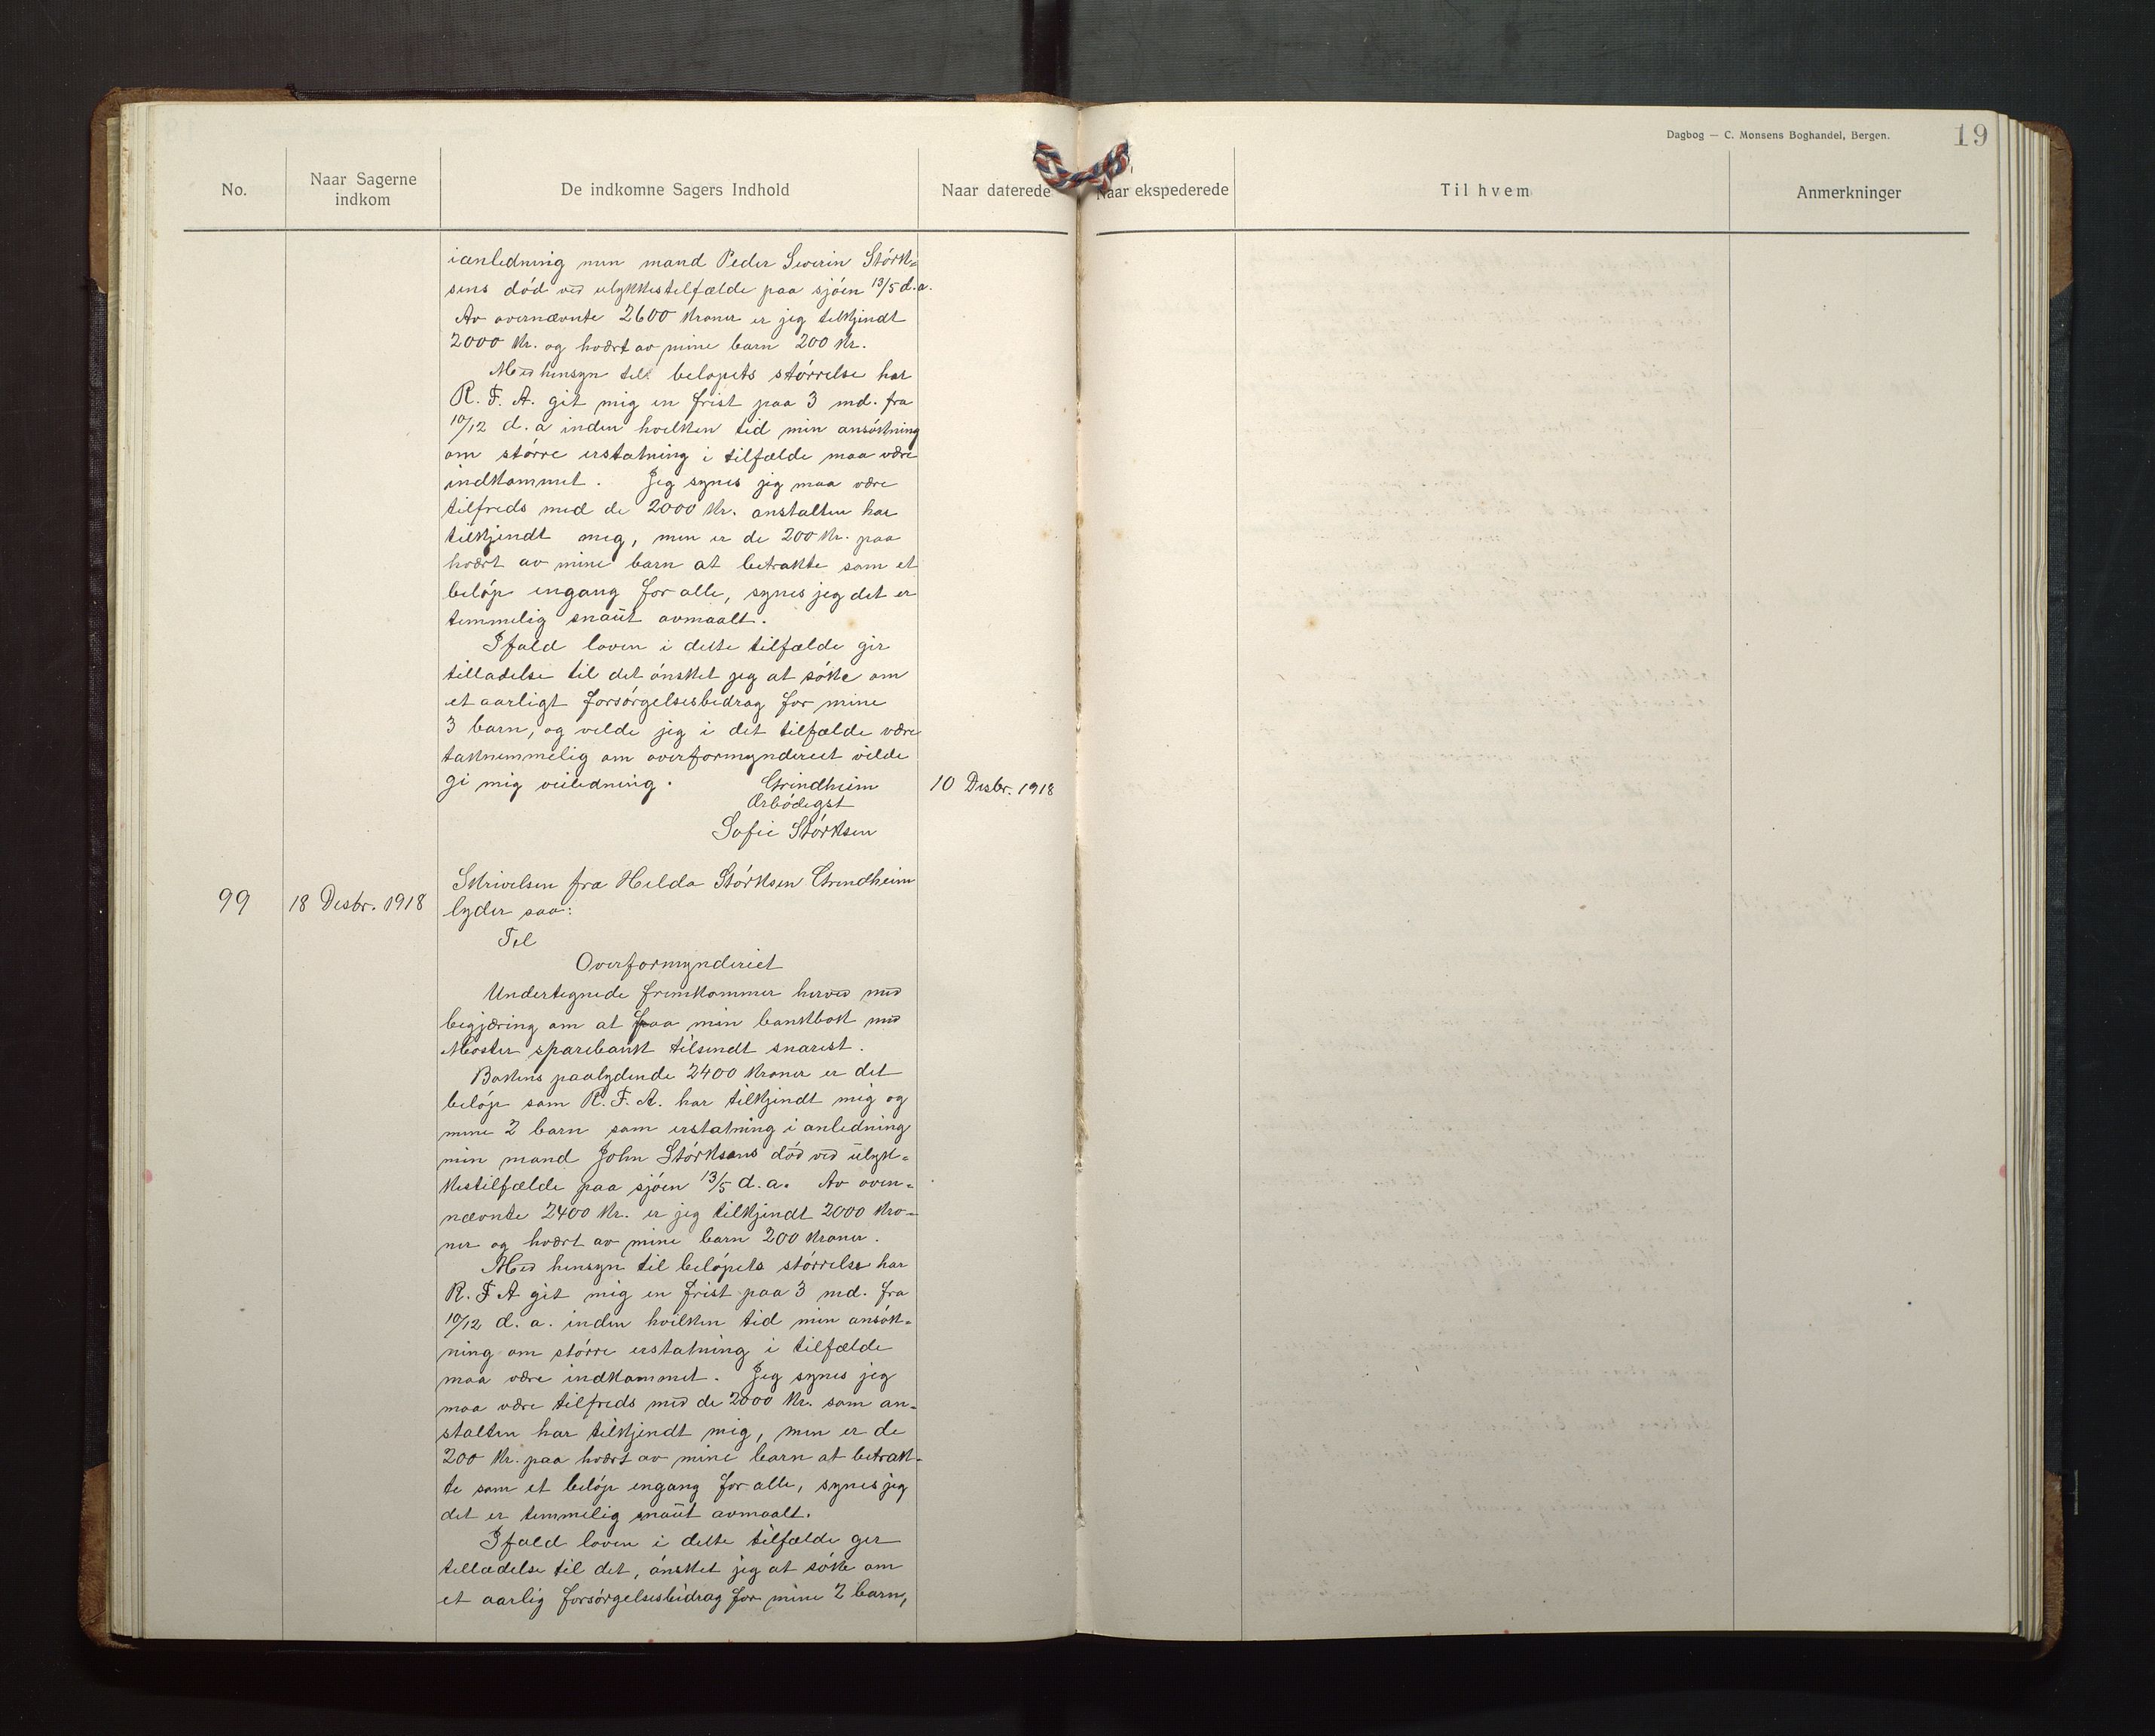 Dagbog — C. Monsens Boghandel, Bergen.
19
No.
Naar Sagerne
indkom
De indkomne Sagers Indhold
Naar daterede
Naar ekspederede
Til hvem
Anmerkninger
ianledning min mand Peder Severin Störk=
sens död ved ulykkestilfælde paa sjöen 13/5 d.a.
Av overnævnte 2600 kroner er jeg tilkjendt
2000 kr. og hvært av mine barn 200 kr.
Med hensyn til belopets störrelse har
R. F. A. git mig en frist paa 3 md. fra
10/12 d. a inden hvilken tid min ansökning
om större erstatning i tilfælde maa være
indkommet. Jeg synes jeg maa være
tilfreds med de 2000 kr. anstalten har
tilkjendt mig, men er de 200 kr. paa
hvært av mine barn at betrakte som et
belöp engang for alle, synes jeg det er
temmelig snaut avmaalt.
Ifald loven i dette tilfælde gir
tilladelse til det önsket jeg at söke om
et aarligt forsörgelsesbidrag for mine
3 barn, og vilde jeg i det tilfælde være
taknemmelig om overformynderiet vilde
gi mig veiledning. Grindheim
10 Desbr. 1918
Ærbödigst
Sofie Störksen
99
18 Desbr. 1918
Skrivelsen fra Hilda Störksen Grindheim
lyder saa:
Til
Overformynderiet
Undertegnede fremkommer herved med
begjæring om at faa min bankbok med
Moster sparebank tilsendt snarest.
Bokens paalydende 2400 kroner er det
belöp som R. F. A. har tilkjendt mig og
mine 2 barn som erstatning i anledning
min mand John Störksens död ved ulyk=
kestilfælde paa sjöen 13/5 d.a. Av oven=
nævnte 2400 kr. er jeg tilkjendt 2000 kro=
ner og hvært av mine barn 200 kroner.
Med hensyn til belöpets störrelse har
R. F A git mig en frist paa 3 md. fra
10/12 d. a. inden hvilken tid min ansök=
ning om större erstatning i tilfælde
maa være indkommet. Jeg synes jeg
maa være tilfreds med de 2000 kr. som an=
stalten har tilkjendt mig, men er de
200 kr. paa hvært av mine barn at betrak=
te som et belöp engang for alle, synes jeg
det er temmelig snaut avmaalt.
Ifald loven i dette tilfælde gir
tilladelse til det, önsket jeg at söke om
et aarlig forsörgelsesbidrag for mine 2 barn,